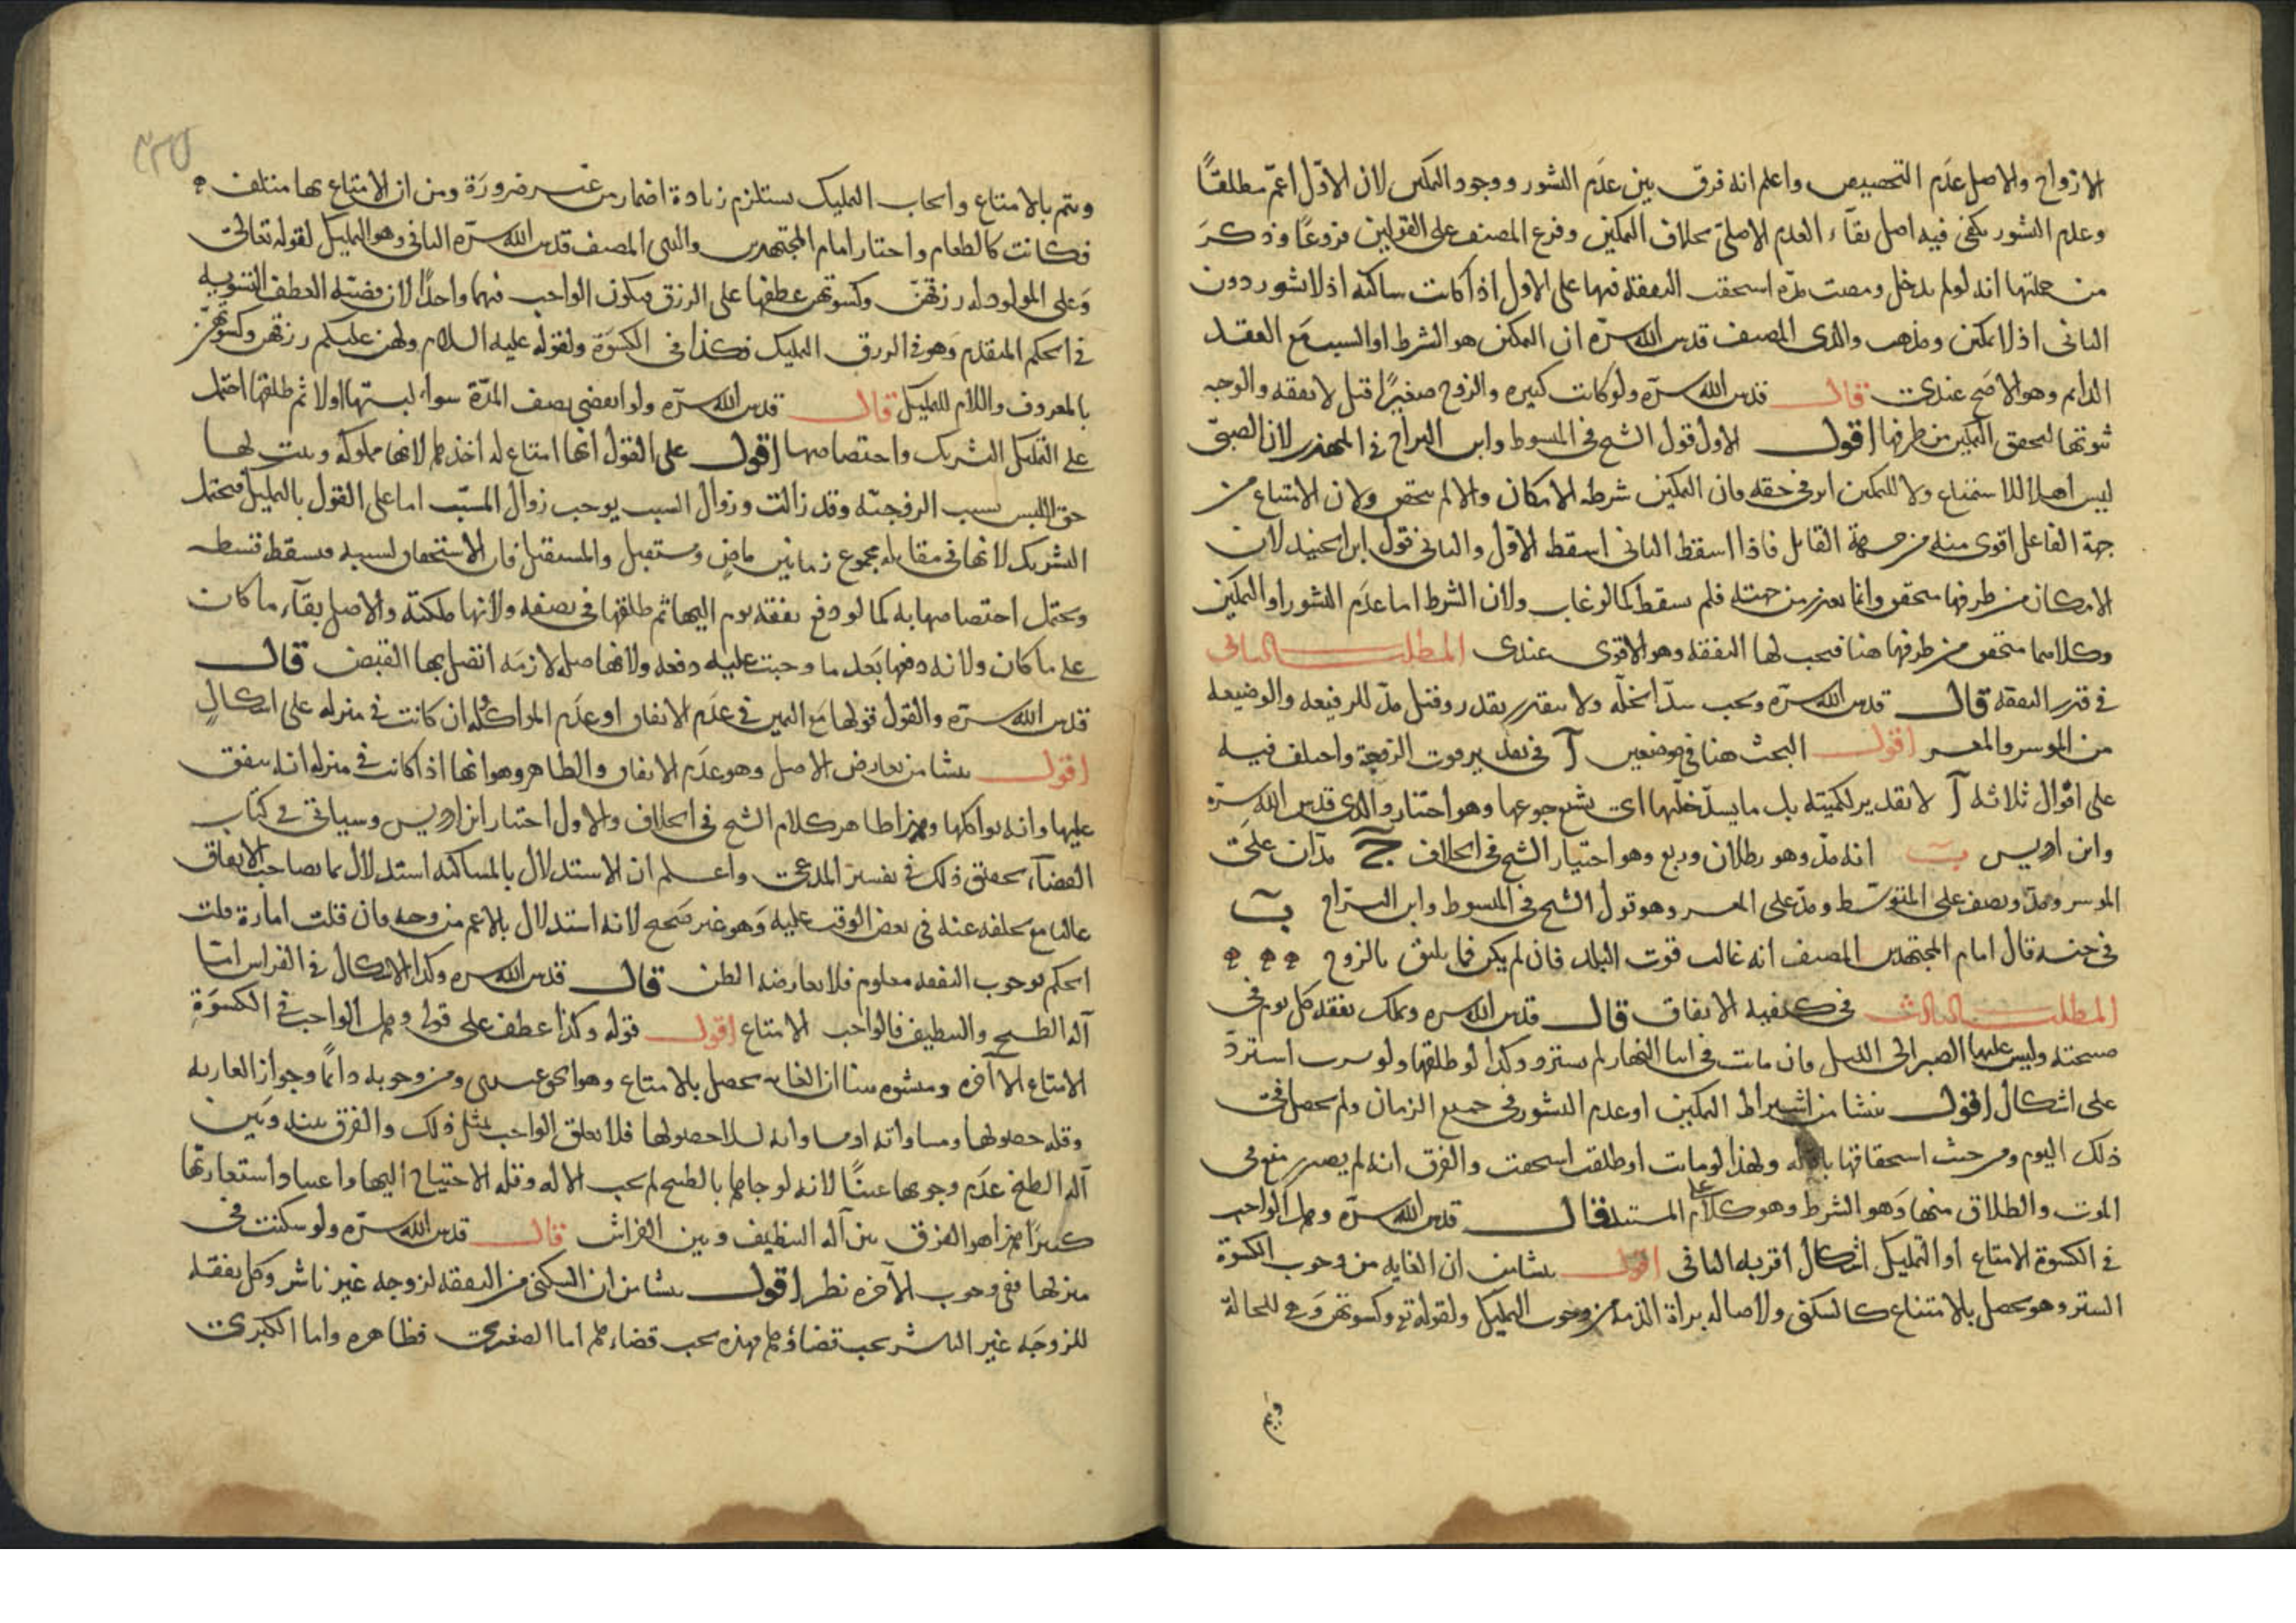 الازواج والاصل عدم التخصيص واعلم انه فرق بين عدم النشوز ووجود التمكين لان الاول اعم مطلقا
وعدم النشوز يكفى فيه اصل بقاء العدم الاصلى بخلاف التمكين وفرع المصنف على القولين فروعا وذكر
من جملتها انه لو لم يدخل ومضت مدة استحقت النفقة فيها على الاول اذا كانت ساكتة اذ لا نشوز دون
الثانى اذ لا تمكين ومذهب والدى المصنف قدس الله سره ان التمكين هو الشرط او السبب مع العقد
الدايم وهو الاصح عندى قال قدس الله سره ولو كانت كبيرة والزوج صغيرا قيل لا نفقة والوجه
ثبوتها لتحقق التمكين من طرفها اقول الاول قول الشيخ فى المبسوط وابن البراج فى المهذب لان الصبى
ليس اهلا للاستمتاع ولا للتمكين من فى حقه فان التمكين شرطه الامكان والا لم يتحقق ولان الامتناع من
جهة الفاعل اقوى منه من جهة القابل فاذا اسقط الثانى اسقط الاول والثانى قول ابن الجنيد لان
الامكان من طرفها متحقق وانما تعذر من جهته فلم يسقط كما لو غاب ولان الشرط اما عدم النشوز او التمكين
وكلاهما متحقق من طرفها هنا فيجب لها النفقة وهو الاقوى عندى المطلب الثانى
فى قدر النفقة قال قدس الله سره ويجب سد الخلة ولا يتقدر بقدر وقيل مد للرفيعة والوضيعة
من الموسر والمعسر اقول البحث هنا فى موضعين آ فى تقدير قوت الزوجة واختلف فيه
على اقوال ثلاثة آ لا تقدير لكميته بل ما يسد خلتها اى يشبع جوعها وهو اختيار والدى قدس الله سره
وابن ادريس ب انه مد وهو رطلان وربع وهو اختيار الشيخ فى الخلاف ج مدان على
الموسر ومد ونصف على المتوسط ومد على المعسر وهو قول الشيخ فى المبسوط وابن البراج ب
فى جنسه قال امام المجتهدين المصنف انه غالب قوت البلد فان لم يكن فما يليق بالزوج
المطلب الثالث فى كيفية الانفاق قال قدس الله سره وتملك نفقة كل يوم فى
صبيحته وليس عليها الصبر الى الليل فان ماتت فى اثنا النهار لم يسترد وكذا لو طلقها ولو نشزت استرد
على اشكال اقول ينشا من اشتراط التمكين او عدم النشوز فى جميع الزمان ولم يحصل فى
ذلك اليوم ومن حيث استحقاقها ولهذا لو ماتت او طلقت استحقت والفرق انه لم يصدر منع فى
الموت والطلاق منها وهو الشرط وهو كلام المستند قال قدس الله سره وهل الواجب
فى الكسوة الامتاع او التمليك اشكال اقربه الثانى اقول ينشا من ان الغاية من وجوب الكسوة
الستر وهو يحصل بالامتاع كالسكنى ولاصالة براءة الذمة من وجوب التمليك ولقوله تع وكسوتهن وهى للحالة
ويتم
ويتم بالامتاع وايجاب التمليك يستلزم زيادة اضمار من غير ضرورة ومن ان الامتاع بها متلف
فكانت كالطعام واختار امام المجتهدين والدى المصنف قدس الله سره الثانى وهو التمليك لقوله تعالى
وعلى المولود له رزقهن وكسوتهن عطفها على الرزق فيكون الواجب فيهما واحدا لان قضية العطف التسوية
فى الحكم المتقدم وهو فى الرزق التمليك فكذا فى الكسوة ولقوله عليه السلام ولهن عليكم رزقهن وكسوتهن
بالمعروف واللام للتمليك قال قدس الله سره ولو انقضى نصف المدة سواء لبستها او لا ثم طلقها احتمل
على التمليك التشريك واختصاصها اقول على القول انها امتاع له اخذها لانها مملوكة وثبت لها
حق اللبس بسبب الزوجية وقد زالت وزوال السبب يوجب زوال المسبب اما على القول بالتمليك فيحتمل
التشريك لانها فى مقابلة مجموع زمانين ماض ومستقبل والمستقبل فات الاستحقاق لسببه فيسقط قسطه
ويحتمل اختصاصها به كما لو دفع نفقة يوم اليها ثم طلقها فى نصفه ولانها ملكته والاصل بقاء ما كان
على ما كان ولانه دفعها بعد ما وجبت عليه دفعه ولانها صلة لازمة اتصل بها القبض قال
قدس الله سره والقول قولها مع اليمين فى عدم الانفاق او عدم المواكلة ان كانت فى منزله على اشكال
اقول ينشا من تعارض الاصل وهو عدم الانفاق والظاهر وهو انها اذا كانت فى منزله انه ينفق
عليها وانه يواكلها وهذا ظاهر كلام الشيخ فى الخلاف والاول اختيار ابن ادريس وسياتى فى كتاب
القضاء تحقيق ذلك فى تفسير المدعى واعلم ان الاستدلال بالمساكنة استدلال بما يصاحب الانفاق
غالبا مع تخلفه عنه فى بعض الوقت عليه وهو غير صحيح لانه استدلال بالاعم من وجه فان قلت امارة قلت
الحكم بوجوب النفقة معلوم فلا يعارضه الظن قال قدس الله سره وكذا الاشكال فى الفراش اما
آلة الطبخ والتنظيف فالواجب الامتاع اقول قوله وكذا عطف على قوله وهل الواجب فى الكسوة
الامتاع الا آخره ومنشوه هنا ان الغاية تحصل بالامتاع وهو نحو عندى ومن وجوبه دائما وجواز العارية
وقلة حصولها ومساواته فلا يعلق الواجب بمثل ذلك والفرق بينه وبين
آلة الطبخ عدم وجوبها عينا لانه لو جاءها بالطبخ لم يجب الالة وقلة الاحتياج اليها واعتياد استعارتها
كثيرا هذا هو الفرق بين آلة التنظيف وبين الفراش قال قدس الله سره ولو سكنت فى
منزلها ففى وجوب الاجرة نظر اقول ينشا من ان السكنى من النفقة لزوجة غير ناشز وكل نفقة
للزوجة غير الناشز يجب قضاؤها فهذه يجب قضاءها اما الصغرى فظاهرة واما الكبرى